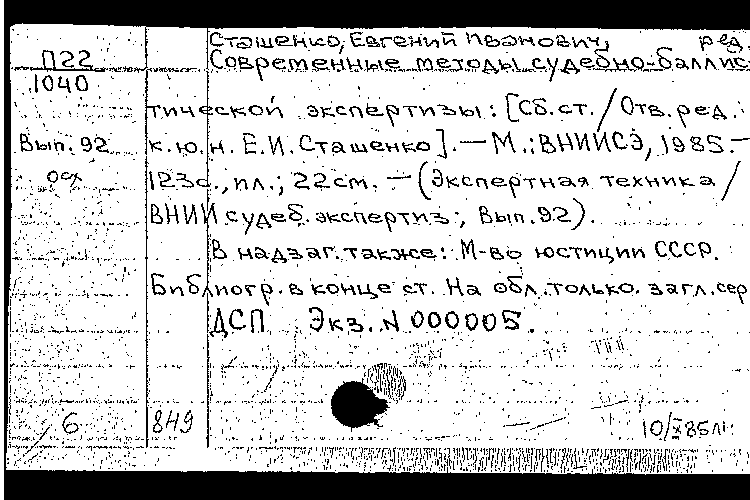 Сташенко, Евгений Иванович, ред.
П22
Современные методы судебно-баллис-
1040
тической экспертизы: [Сб.ст./Отв.ред.
Вып. 92
к.ю.н. Е.И. Сташенко]. — М.: ВНИИСЭ, 1985. —
осх
123с., ил.; 22см. — (Экспертная техника /
ВНИИ судеб. экспертиз; Вып.92).
В надзаг. также: М-во юстиции СССР.
Библиогр. в конце ст. На обл. только. загл. сер
ДСП Экз. N 000005.
6
849
10/X 85